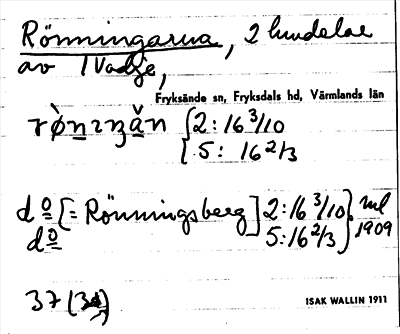 Rönningarna, 2 lindelar
av 1 Vadje,
Fryksände sn, Fryksdals hd, Värmlands län
2:16 3/10
5: 16 2/3
do [= Rönningsberg] 2:16 3/10 } ml
do 5:16 2/3 1909
37
ISAK WALLIN 1911